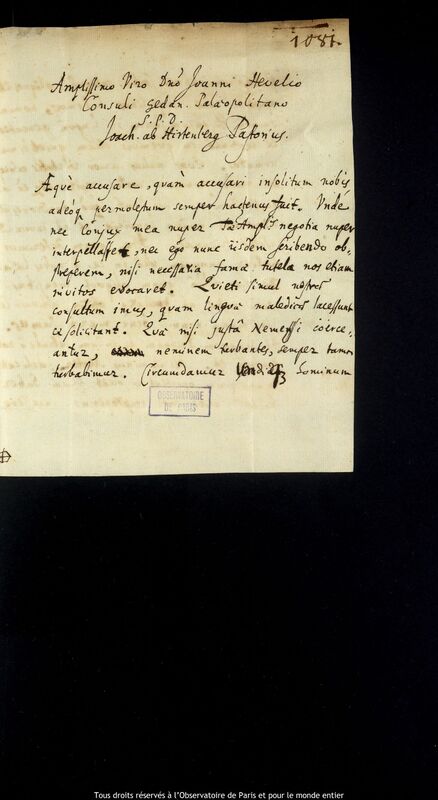 1081.
Amplissimo Viro Dnō Joanni Hevelio
Consuli Gedan. Palæopolitano
S. P. D.
Joach. ab Hirtenberg Pastorius.
Æquè accusare, quàm accusari insolitum nobis
adeóq permolestum semper hactenus fuit. Unde
nec Conjux mea nuper Ampl negotia nuper
interpellasset, nec ego nunc iisdem scribendo ob-
streperem, nisi necessaria famæ tutela nos etiam
invitos evocaret. Quieti simul nostræ
consultum imus, quam linguæ maledicæ lacessunt
ac solicitant. Quæ nisi justâ Nemesi coerce-
antur, neminem turbantes, semper tamen
turbabimur. Circumdamur hominum
OBSERVATOIRE
DE PARIS
Tous droits réservés à l'Observatoire de Paris et pour le monde entier